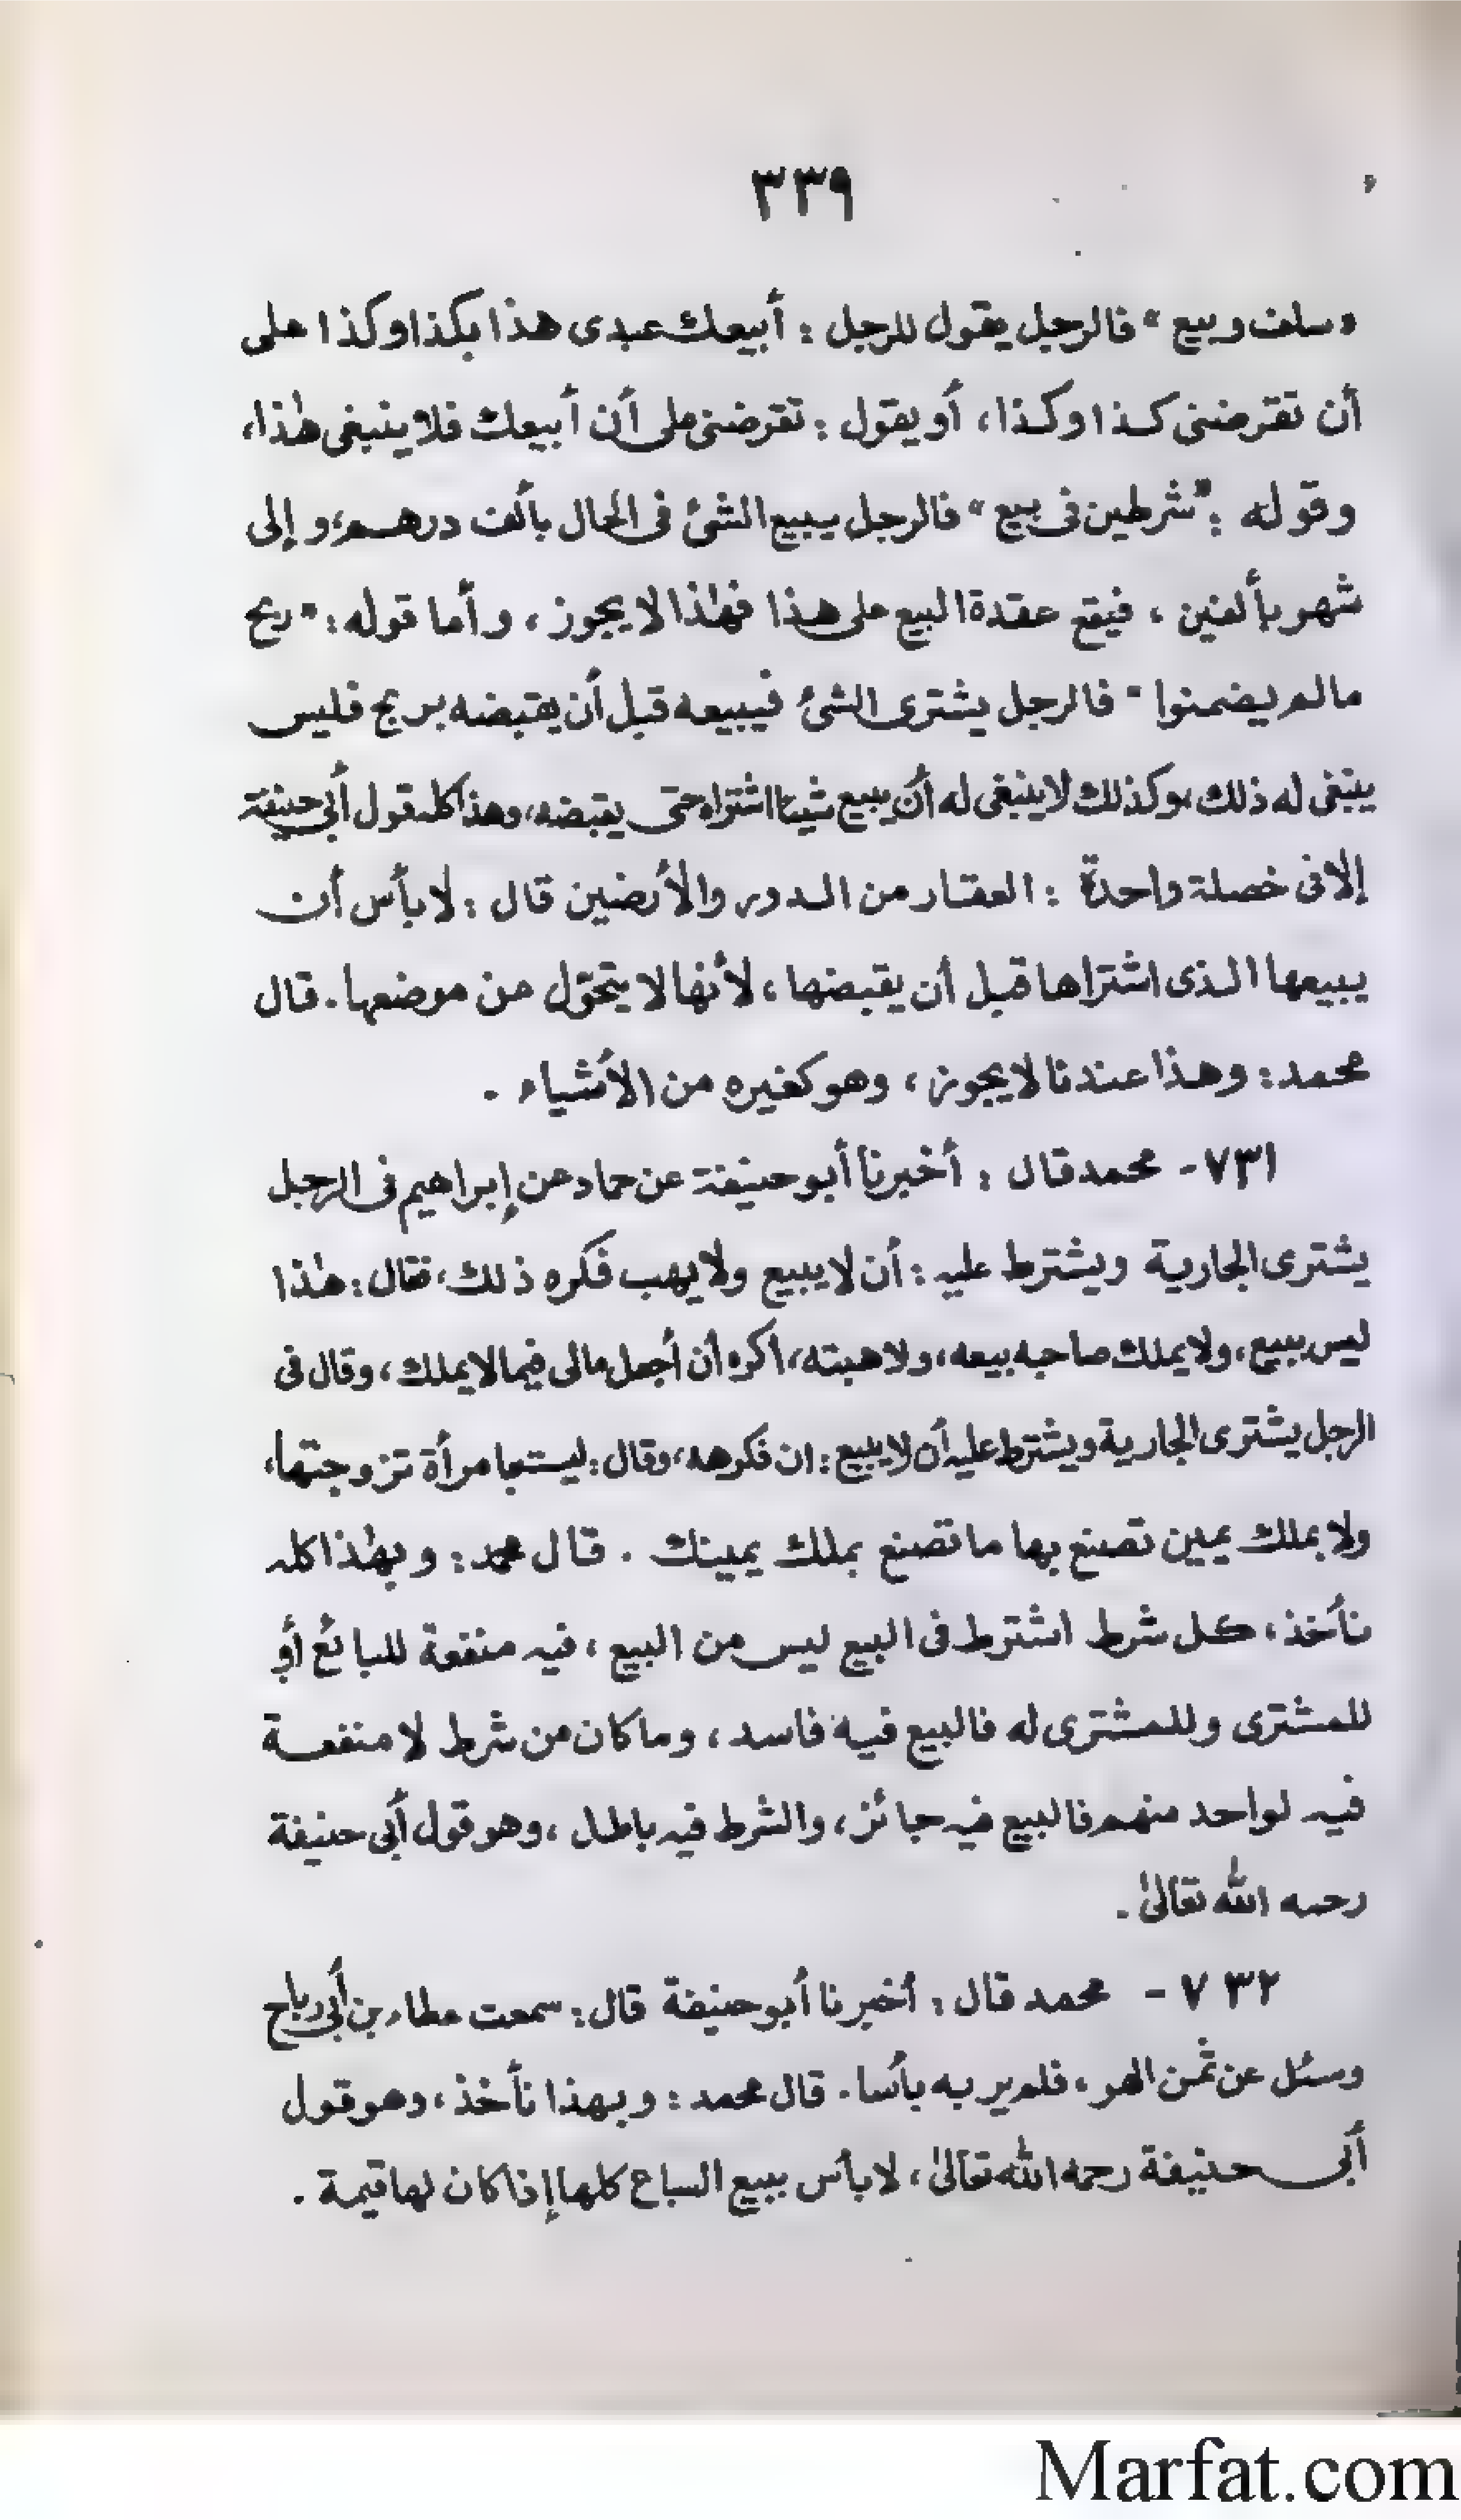 ٣٣٩
"سلف وبيع" فالرجل يقول للرجل : أبيعك عبدى هذا بكذا وكذا على
أن تقرضنى كذا وكذا، أو يقول : تقرضنى على أن أبيعك فلا ينبغى هٰذا،
وقوله : "شرطين فى بيع" فالرجل يبيع الشئ فى الحال بألف درهم، و إلى
شهر بألفين ، فيقع عقدة البيع على هذا فهٰذا لا يجوز ، وأما قوله : "ربح
مالم يضمنوا" فالرجل يشترى الشئ فيبيعه قبل أن يقبضه بربح فليس
ينبغى له ذلك، وكذلك لا ينبغى له أن يبيع شيئا اشتراه حتى يقبضه، وهذا كله قول أبى حنيفة
إلا فى خصلة واحدة : العقار من الدور والأرضين قال : لا بأس أن
يبيعها الذى اشتراها قبل أن يقبضها ، لأنها لا يتحوّل عن موضعها . قال
محمد : وهذا عندنا لا يجوز ، وهو كغيره من الأشياء .
٧٣١ - محمد قال : أخبرنا أبو حنيفة عن حماد عن إبراهيم فى الرجل
يشترى الجارية ويشترط عليه : أن لا يبيع ولا يهب فكره ذلك، فقال : هٰذا
ليس ببيع، ولا يملك صاحبه بيعه، ولا هبته، اكره أن أجعل مالى فيما لا يملك، وقال فى
الرجل يشترى الجارية ويشترط عليه أن لا يبيع : ان فكرهه، وقال : ليست بامرأة تزوجتها،
ولا بملك يمين تصنع بها ما تصنع بملك يمينك . قال محمد : وبهٰذا كله
نأخذ، كل شرط اشترط فى البيع ليس من البيع ، فيه منفعة للبائع أو
للمشترى وللمشترى له فالبيع فيه فاسد ، وما كان من شرط لا منفعة
فيه لواحد منهم فالبيع فيه جائز، والشرط فيه باطل ، وهو قول أبى حنيفة
رحمه الله تعالىٰ .
٧٣٢ - محمد قال : أخبرنا أبو حنيفة قال : سمعت عطاء بن أبى رباح
وسئل عن ثمن الهر ، فلم ير به بأسا . قال محمد : وبهذا نأخذ ، وهو قول
أبى حنيفة رحمه الله تعالىٰ ، لا بأس ببيع السباع كلها إذا كان لها قيمة .
Marfat.com